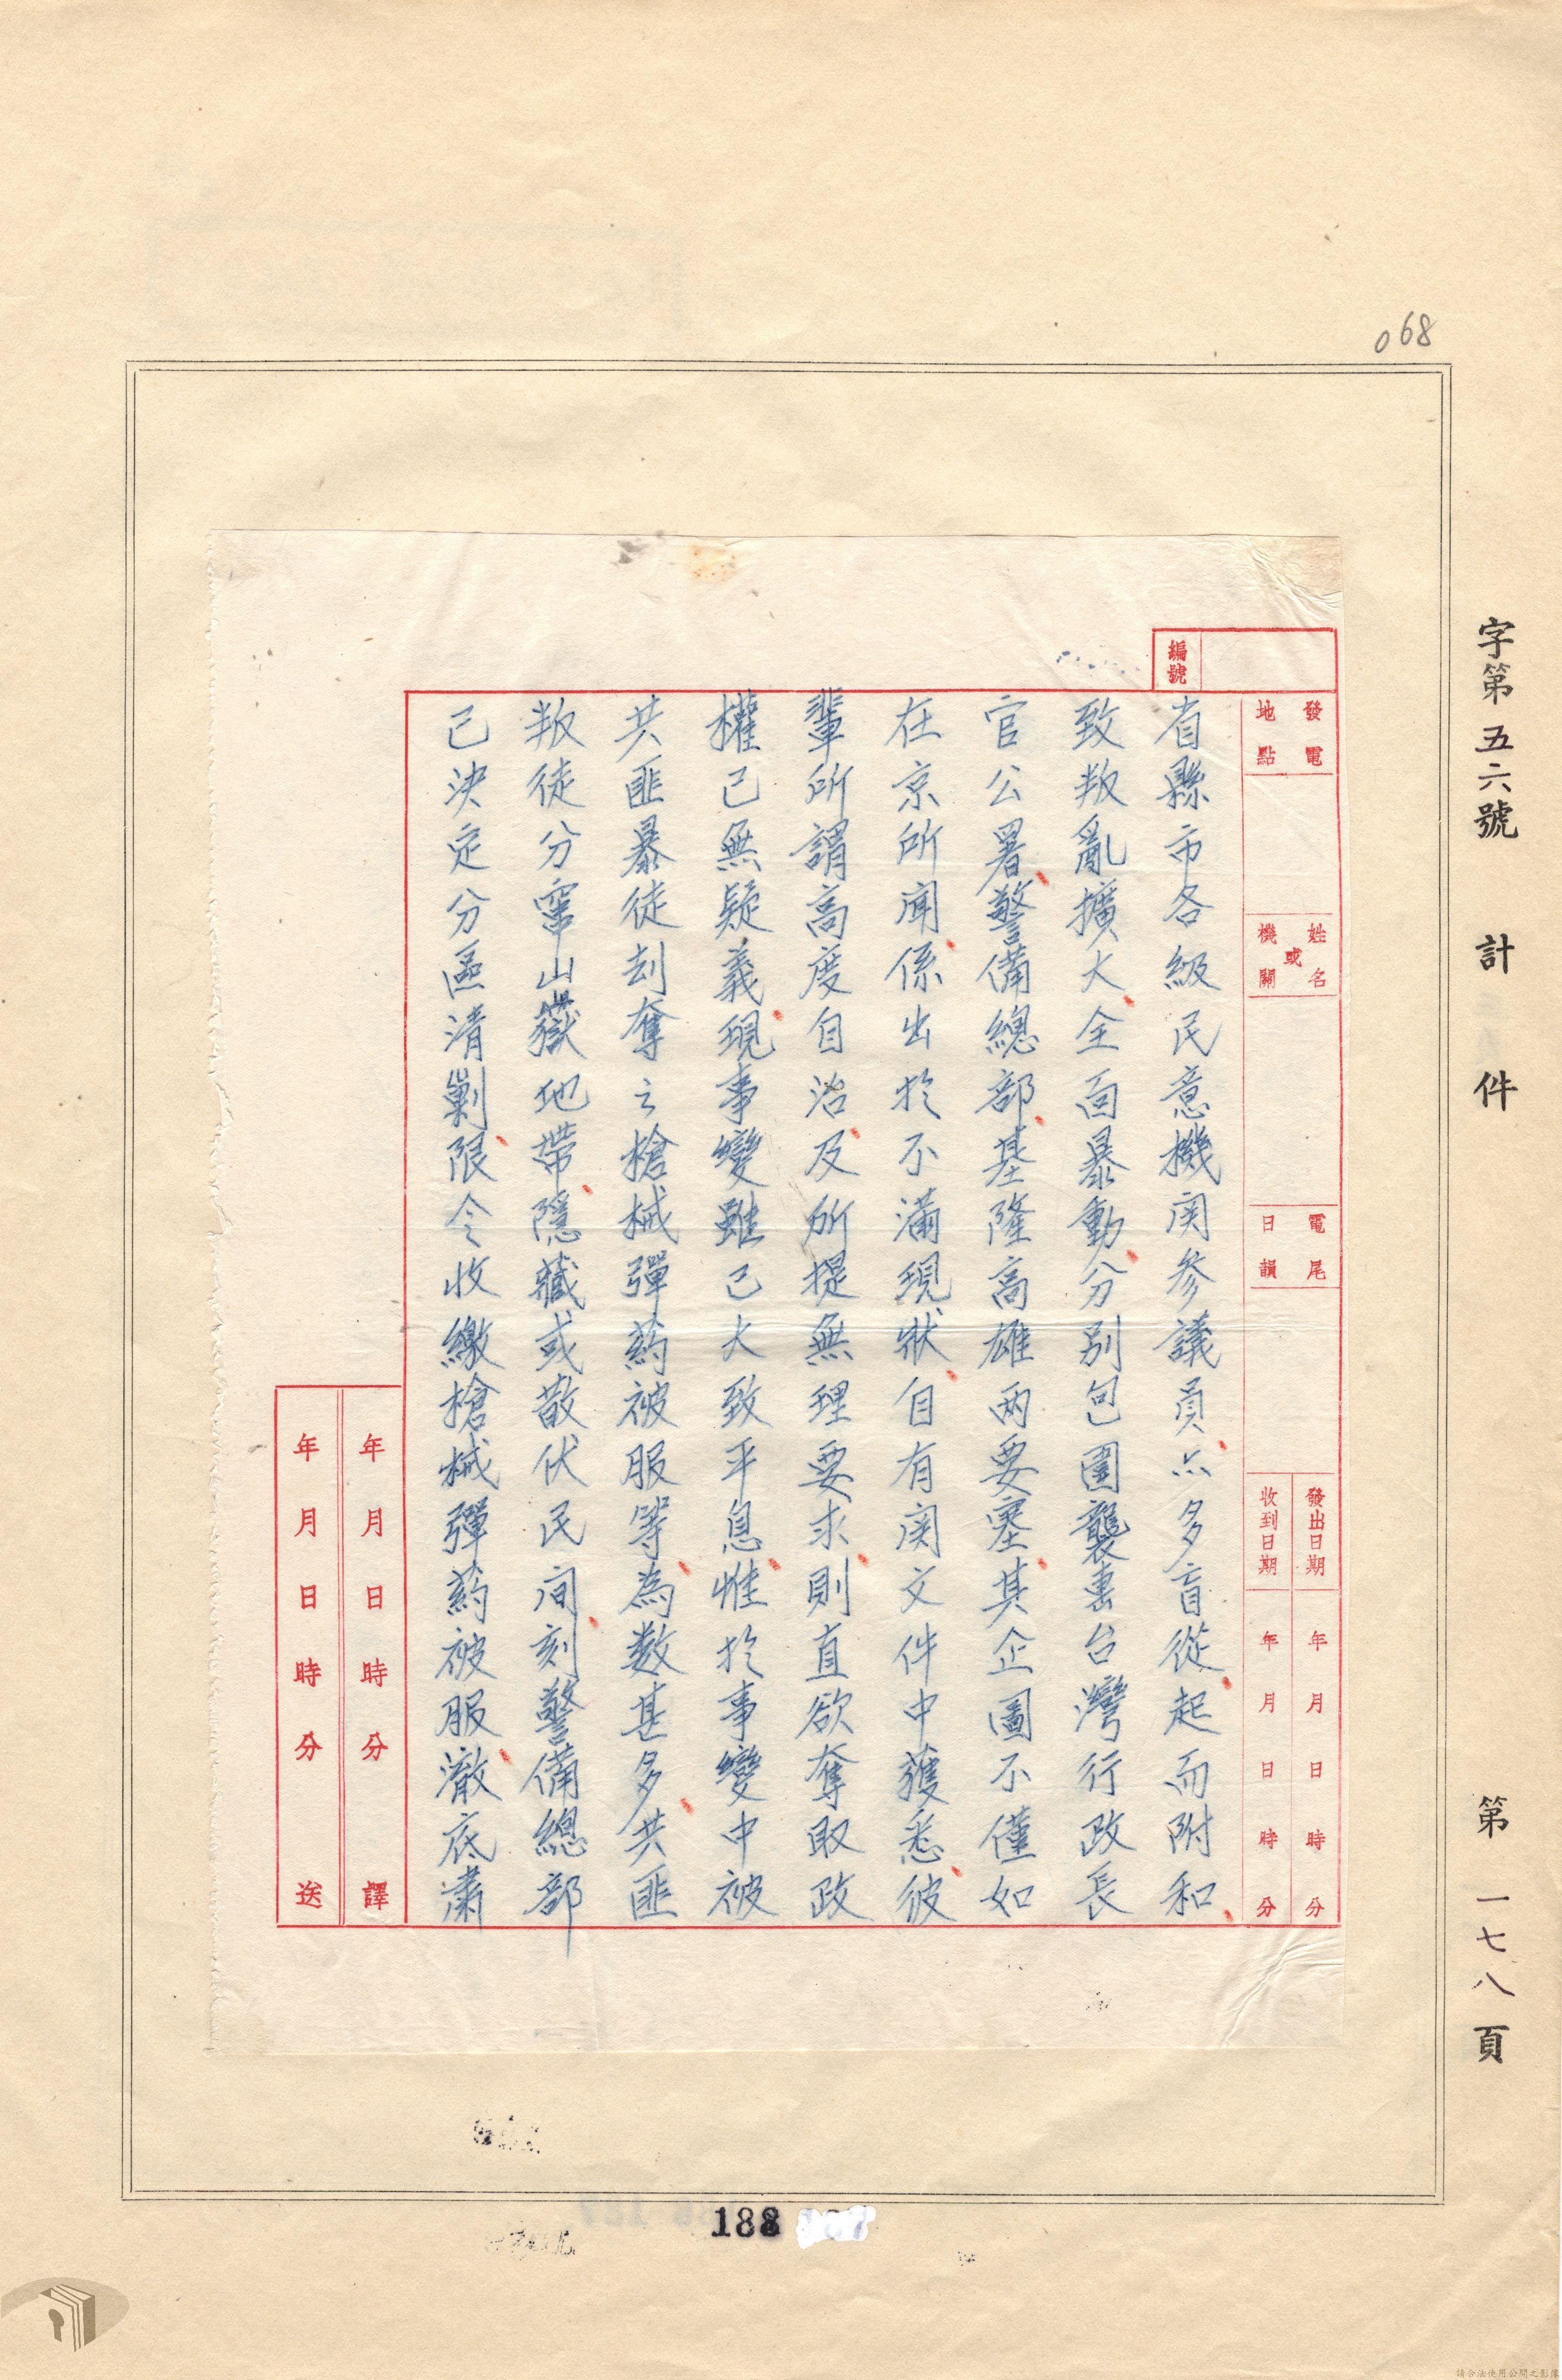 068
字第五六號 計 件 第一七八頁
編號
發電地點
姓名或機關
電尾日韻
發出日期 年 月 日 時 分
收到日期 年 月 日 時 分
省縣市各級民意機関參議員亦多盲從起而附和
致叛亂擴大全面暴動分別包圍襲裏台灣行政長
官公署警備總部基隆高雄兩要塞其企圖不僅如
在京所聞係出於不滿現狀自有関文件中獲悉彼
輩所謂高度自治及所提無理要求則直欲奪取政
權已無疑義現事變雖已大致平息惟於事變中被
共匪暴徒刦奪之槍械彈葯被服等為数甚多共匪
叛徒分竄山嶽地帶隱藏或散伏民间刻警備總部
已決定分區清剿限令收繳槍械彈葯被服澈底肅
年 月 日 時 分 譯
年 月 日 時 分 送
188
請合法使用公開之影像